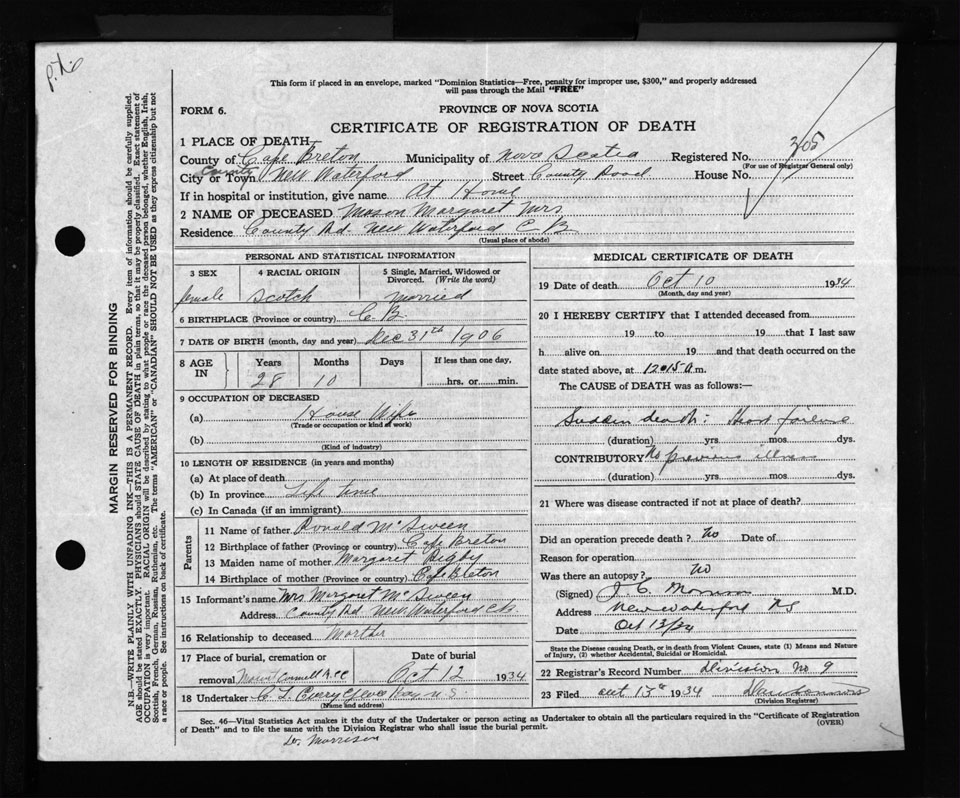 This form if placed in an envelope, marked "Dominion Statistics—Free, penalty for improper use, $300," and properly addressed
will pass through the Mail "FREE"
FORM 6.
PROVINCE OF NOVA SCOTIA
CERTIFICATE OF REGISTRATION OF DEATH
MARGIN RESERVED FOR BINDING
N.B.—WRITE PLAINLY WITH UNFADING INK—THIS IS A PERMANENT RECORD. Every item of information should be carefully supplied.
AGE should be stated EXACTLY. PHYSICIANS should STATE CAUSE OF DEATH in plain terms, so that it may be properly classified. Exact statement of
OCCUPATION is very important. RACIAL ORIGIN will be described by stating to what people or race the deceased person belonged, whether English, Irish,
Scottish, French, German, Russian, Ruthenian, etc. The terms "AMERICAN" or "CANADIAN" SHOULD NOT BE USED as they express citizenship but not
a race or people. See instructions on back of certificate.
1 PLACE OF DEATH
County of Cape Breton Municipality of Nova Scotia Registered No. 305
(For use of Registrar General only)
City or Town County New Waterford Street County Road House No.
If in hospital or institution, give name At Home
2 NAME OF DECEASED Mason Margaret Mrs
Residence County Rd. New Waterford C B
(Usual place of abode)
PERSONAL AND STATISTICAL INFORMATION
3 SEX 4 RACIAL ORIGIN 5 Single, Married, Widowed or Divorced. (Write the word)
female Scotch married
6 BIRTHPLACE (Province or country) C. B.
7 DATE OF BIRTH (month, day and year) Dec 31th 1906
8 AGE IN Years Months Days If less than one day,
28 10 hrs. or min.
9 OCCUPATION OF DECEASED
(a) House Wife
(Trade or occupation or kind of work)
(b)
(Kind of industry)
10 LENGTH OF RESIDENCE (in years and months)
(a) At place of death
(b) In province Life time
(c) In Canada (if an immigrant)
Parents
11 Name of father Ronald McSween
12 Birthplace of father (Province or country) Cape Breton
13 Maiden name of mother Margaret Rigby
14 Birthplace of mother (Province or country) Cape Breton
15 Informant's name Mrs. Margaret McSween
Address County Rd New Waterford C.B.
16 Relationship to deceased Morther
17 Place of burial, cremation or removal Date of burial
Mount Carmell Oct 12 1934
18 Undertaker C L Curry
(Name and address)
MEDICAL CERTIFICATE OF DEATH
19 Date of death Oct 10 1934
(Month, day and year)
20 I HEREBY CERTIFY that I attended deceased from
19 to 19 that I last saw
h alive on 19 and that death occurred on the
date stated above, at 12.15 a m.
The CAUSE of DEATH was as follows:—
Sudden death: Heart failure
(duration) yrs. mos. dys.
CONTRIBUTORY No previous illness
(duration) yrs. mos. dys.
21 Where was disease contracted if not at place of death?
Did an operation precede death? No Date of
Reason for operation
Was there an autopsy? No
(Signed) J. C. Morrison M.D.
Address New Waterford NS
Date Oct 13/34
State the Disease causing Death, or in death from Violent Causes, state (1) Means and Nature
of Injury, (2) whether Accidental, Suicidal or Homicidal.
22 Registrar's Record Number Division No 9
23 Filed oct 13th 1934
(Division Registrar)
Sec. 46—Vital Statistics Act makes it the duty of the Undertaker or person acting as Undertaker to obtain all the particulars required in the "Certificate of Registration
of Death" and to file the same with the Division Registrar who shall issue the burial permit. (OVER)
Dr. Morrison